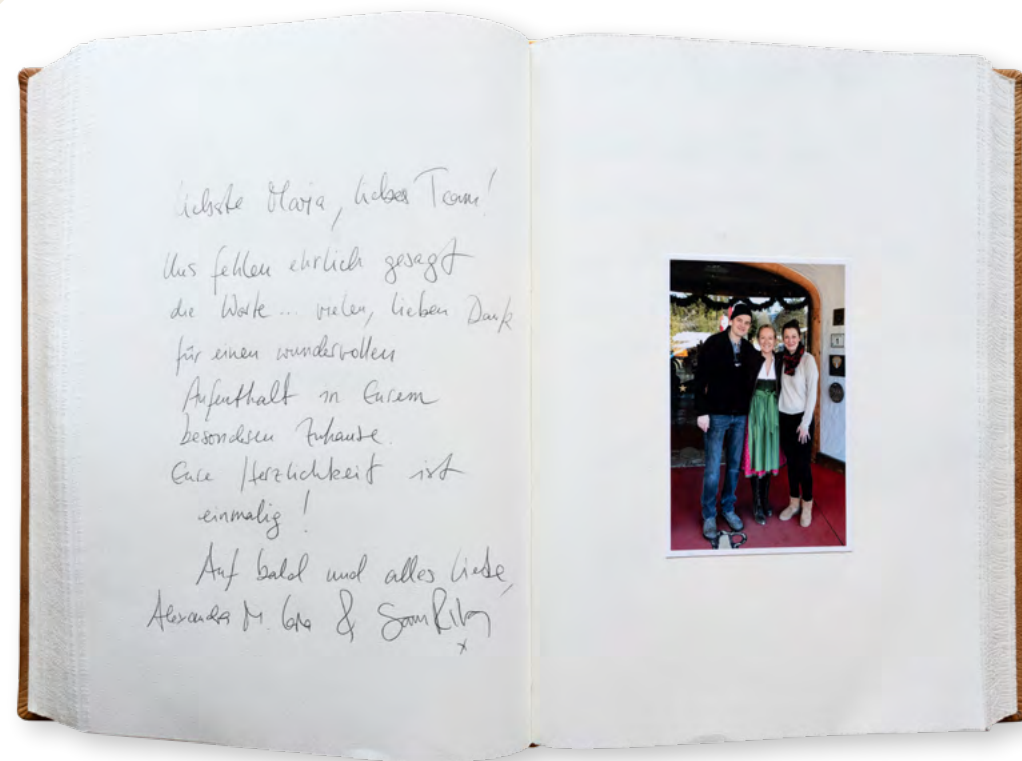 Liebste Marja, liebes Team!
Uns fehlen ehrlich gesagt
die Worte... vielen, lieben Dank
für einen wundervollen
Aufenthalt in Eurem
besonderen Zuhause.
Eure Herzlichkeit ist
einmalig!
Auf bald und alles Liebe,
Alexandra M. Lara & Sam Riley
x